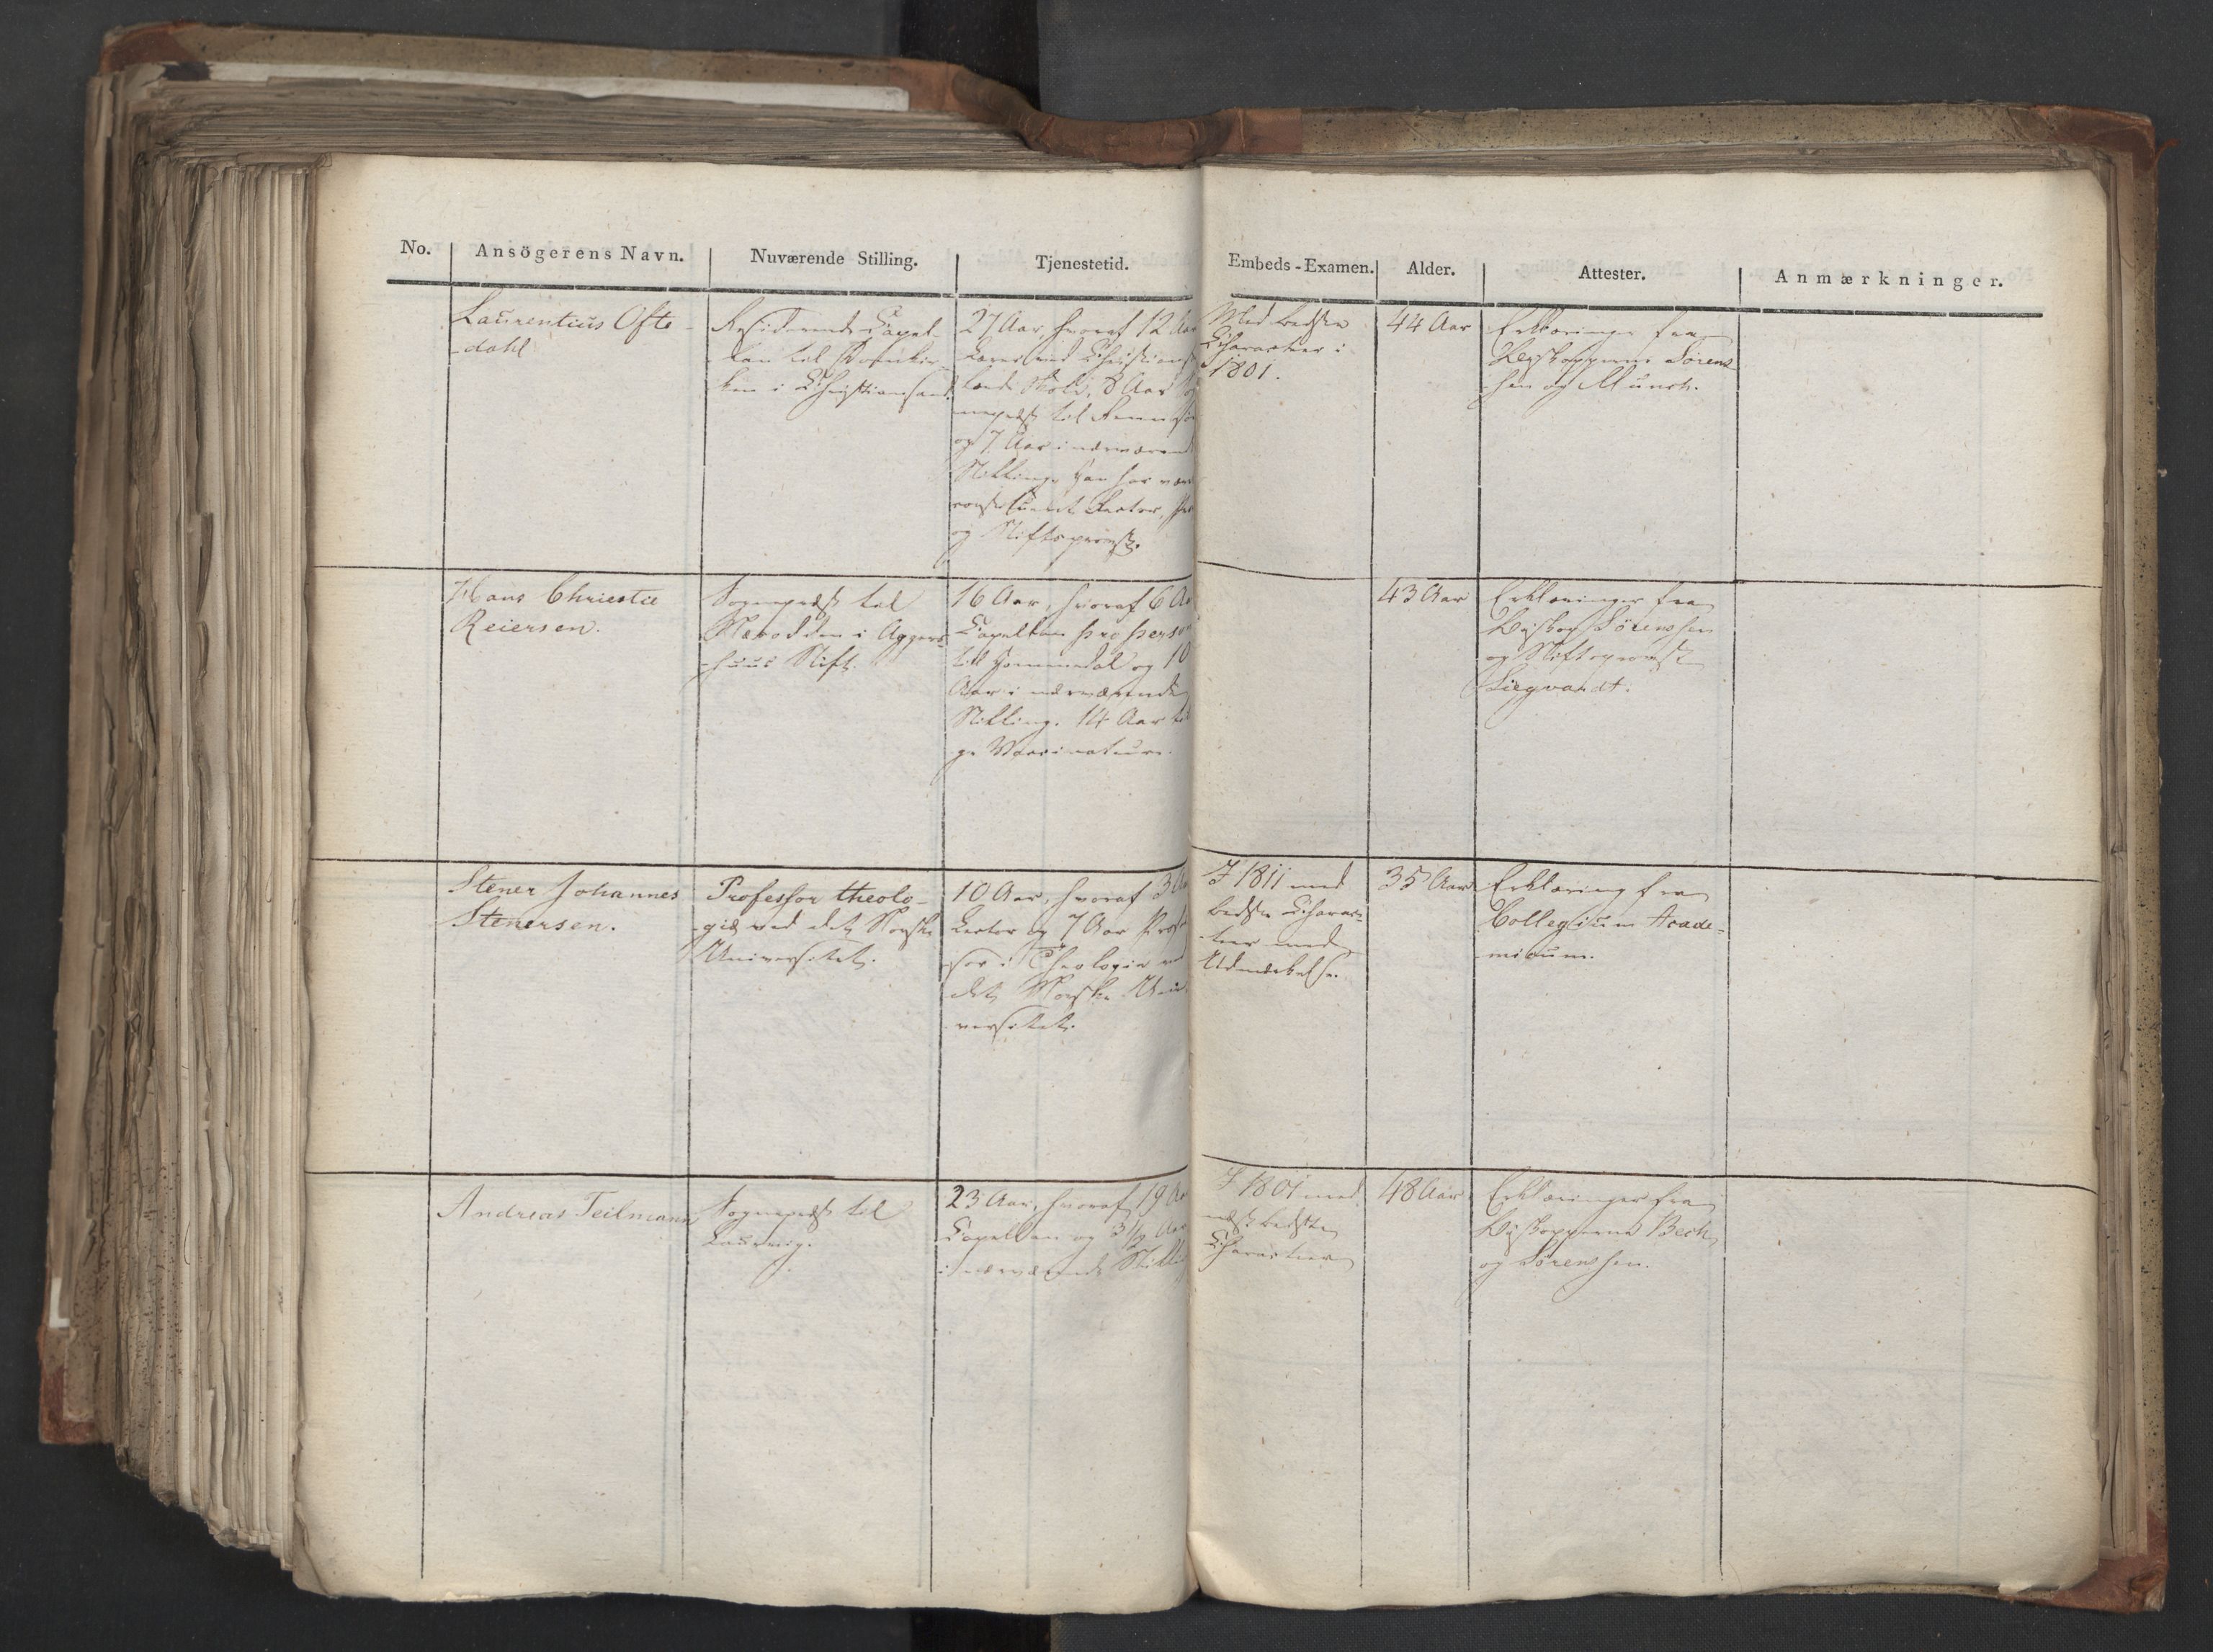 No. Ansögerens Navn. Nuværende Stilling. Tjenestetid. Embeds-Examen. Alder. Attester. Anmærkninger.
Laurentius Ofte-
-dahl
Residerende Capel-
lan til Domkir-
ken i Christiansand.
27 Aar, hvoraf 12 Aar
Lærer ved Christians-
sands Skole, 8 Aar
til
og 7 Aar i nærværende
Stilling. Han har været
constitueret Rector,
og Stiftsprovst.
Med bedste
Charakter i
1801.
44 Aar
Erklæringer fra
Biskopperne Sørens-
sen og Munch.
Hans Christie
Reiersen.
Sognepræst til
Næsodden i Aggers-
-huus Stift.
16 Aar, hvoraf 6 Aar
Capellan pro persona
til og 10
Aar i nærværende
Stilling. 14 Aar
Vaccinateur.
43 Aar
Erklæringer fra
Biskop Sørenssen
og Stiftsprovst
Siegvardt.
Stener Johannes
Stenersen.
Professor theolo-
-giæ ved det Norske
Universitet.
10 Aar, hvoraf 3 Aar
Lector og 7 Aar Profes-
sor i Theologie ved
det Norske Uni-
versitet.
I 1811 med
bedste Charac-
teer med
Udmærkelse.
35 Aar
Erklæring fra
Collegium Acade-
micum.
Andreas Teilmann
Sognepræst til
Laurvig.
23 Aar, hvoraf 19 Aar
Capellan og 3 1/2 Aar
i nærværende Stilling
I 1801 med
næst bedste
Characteer
48 Aar
Erklæringer fra
Biskopperne Bech
og Sørenssen.